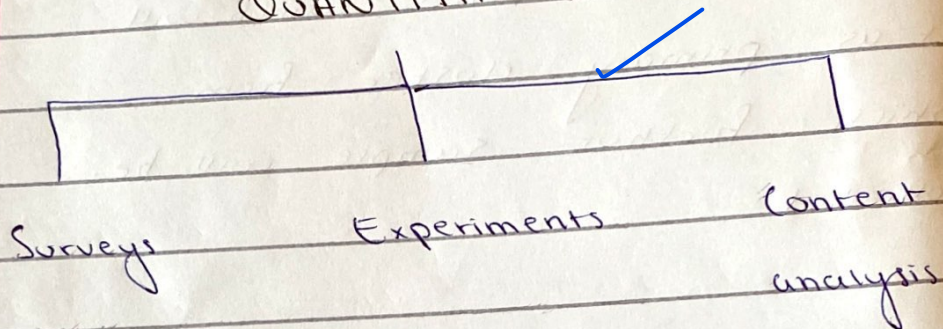 Surveys Experiments Content
analysis